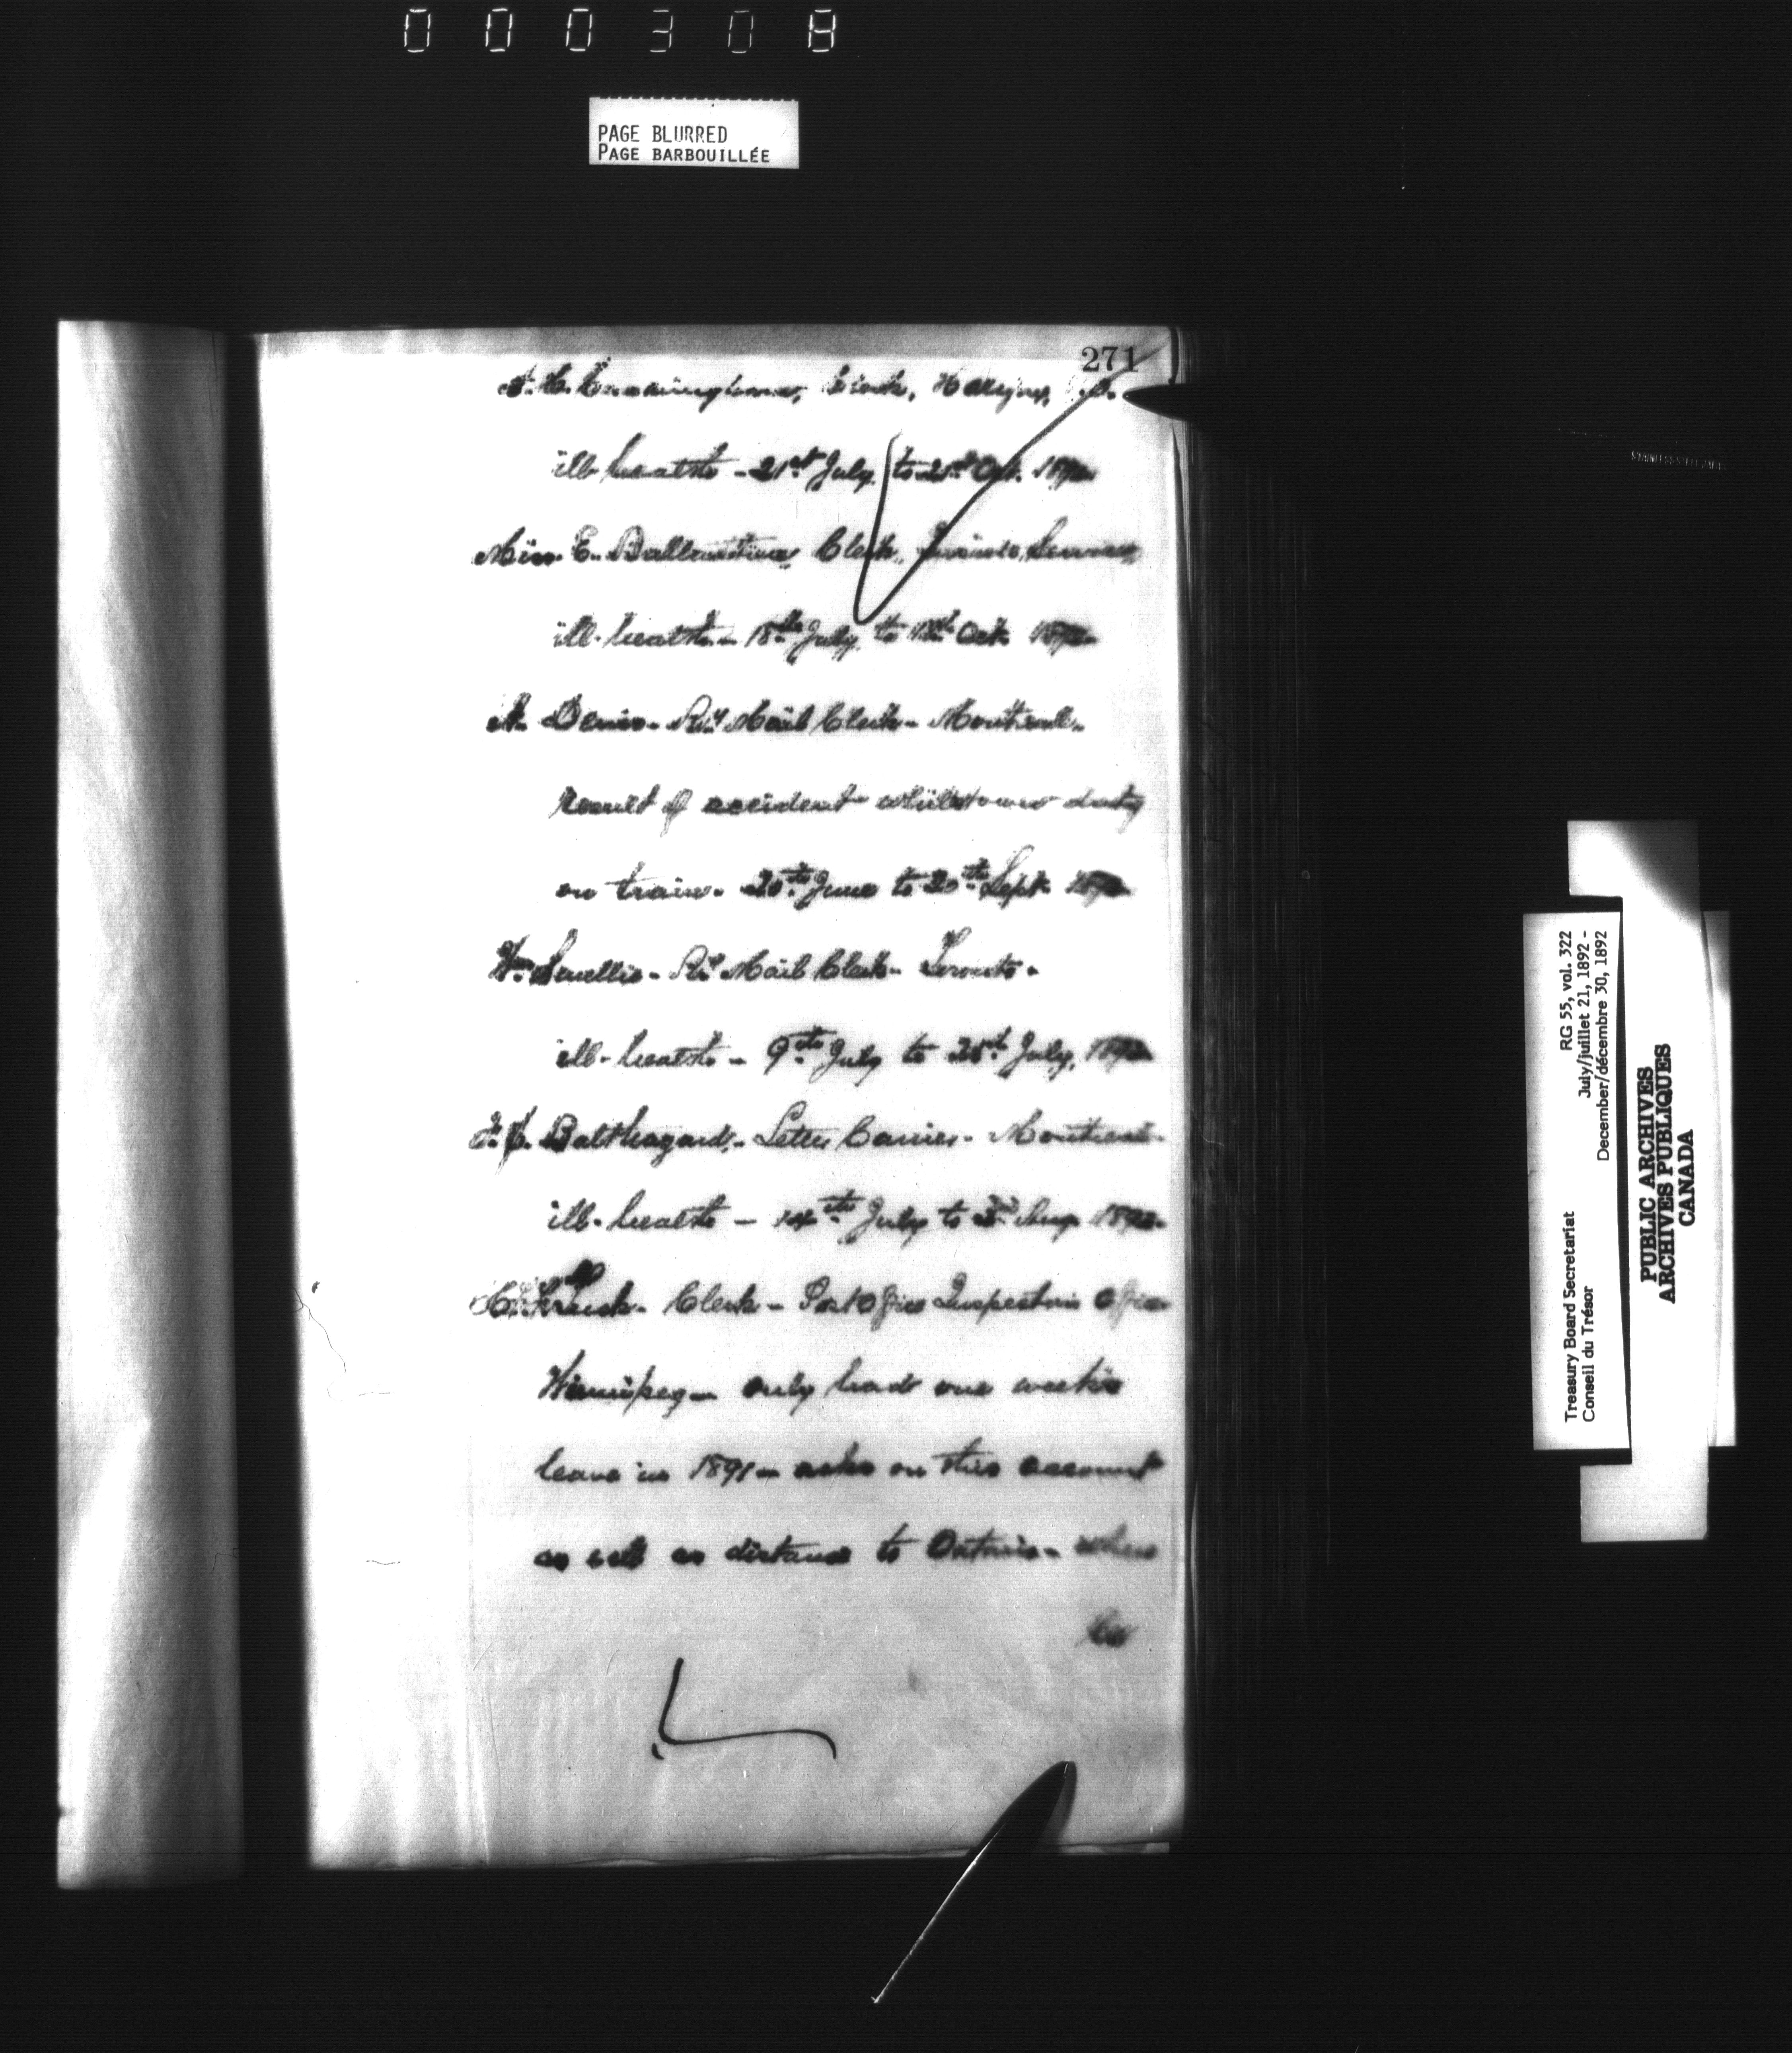 000308
PAGE BLURRED
PAGE BARBOUILLÉE
271
Clerk,
ill health - 21st July to 21st Oct. 1892
Miss E. Ballantine Clerk, Inside Service,
ill-health - 18th July to 18th Oct. 1892
A. Denis - Ry Mail Clerk - Montreal -
result of accident whilst on duty
on train - 20th June to 20th Sept. 1892
Wm Smellie - Ry Mail Clerk - Toronto -
ill-health - 9th July to 21st July, 1892
Balthazard, - Letter Carrier - Montreal -
ill-health - 14th July to Aug. 1892 -
Clerk - Post Office Inspector's Office
Winnipeg - only had one week's
leave in 1891 - asks on this account
as well as distance to Ontario - where
he
STAINLESS STEEL
RG 55, vol. 322
July/juillet 21, 1892 -
December/décembre 30, 1892
Treasury Board Secretariat
Conseil du Trésor
PUBLIC ARCHIVES
ARCHIVES PUBLIQUES
CANADA